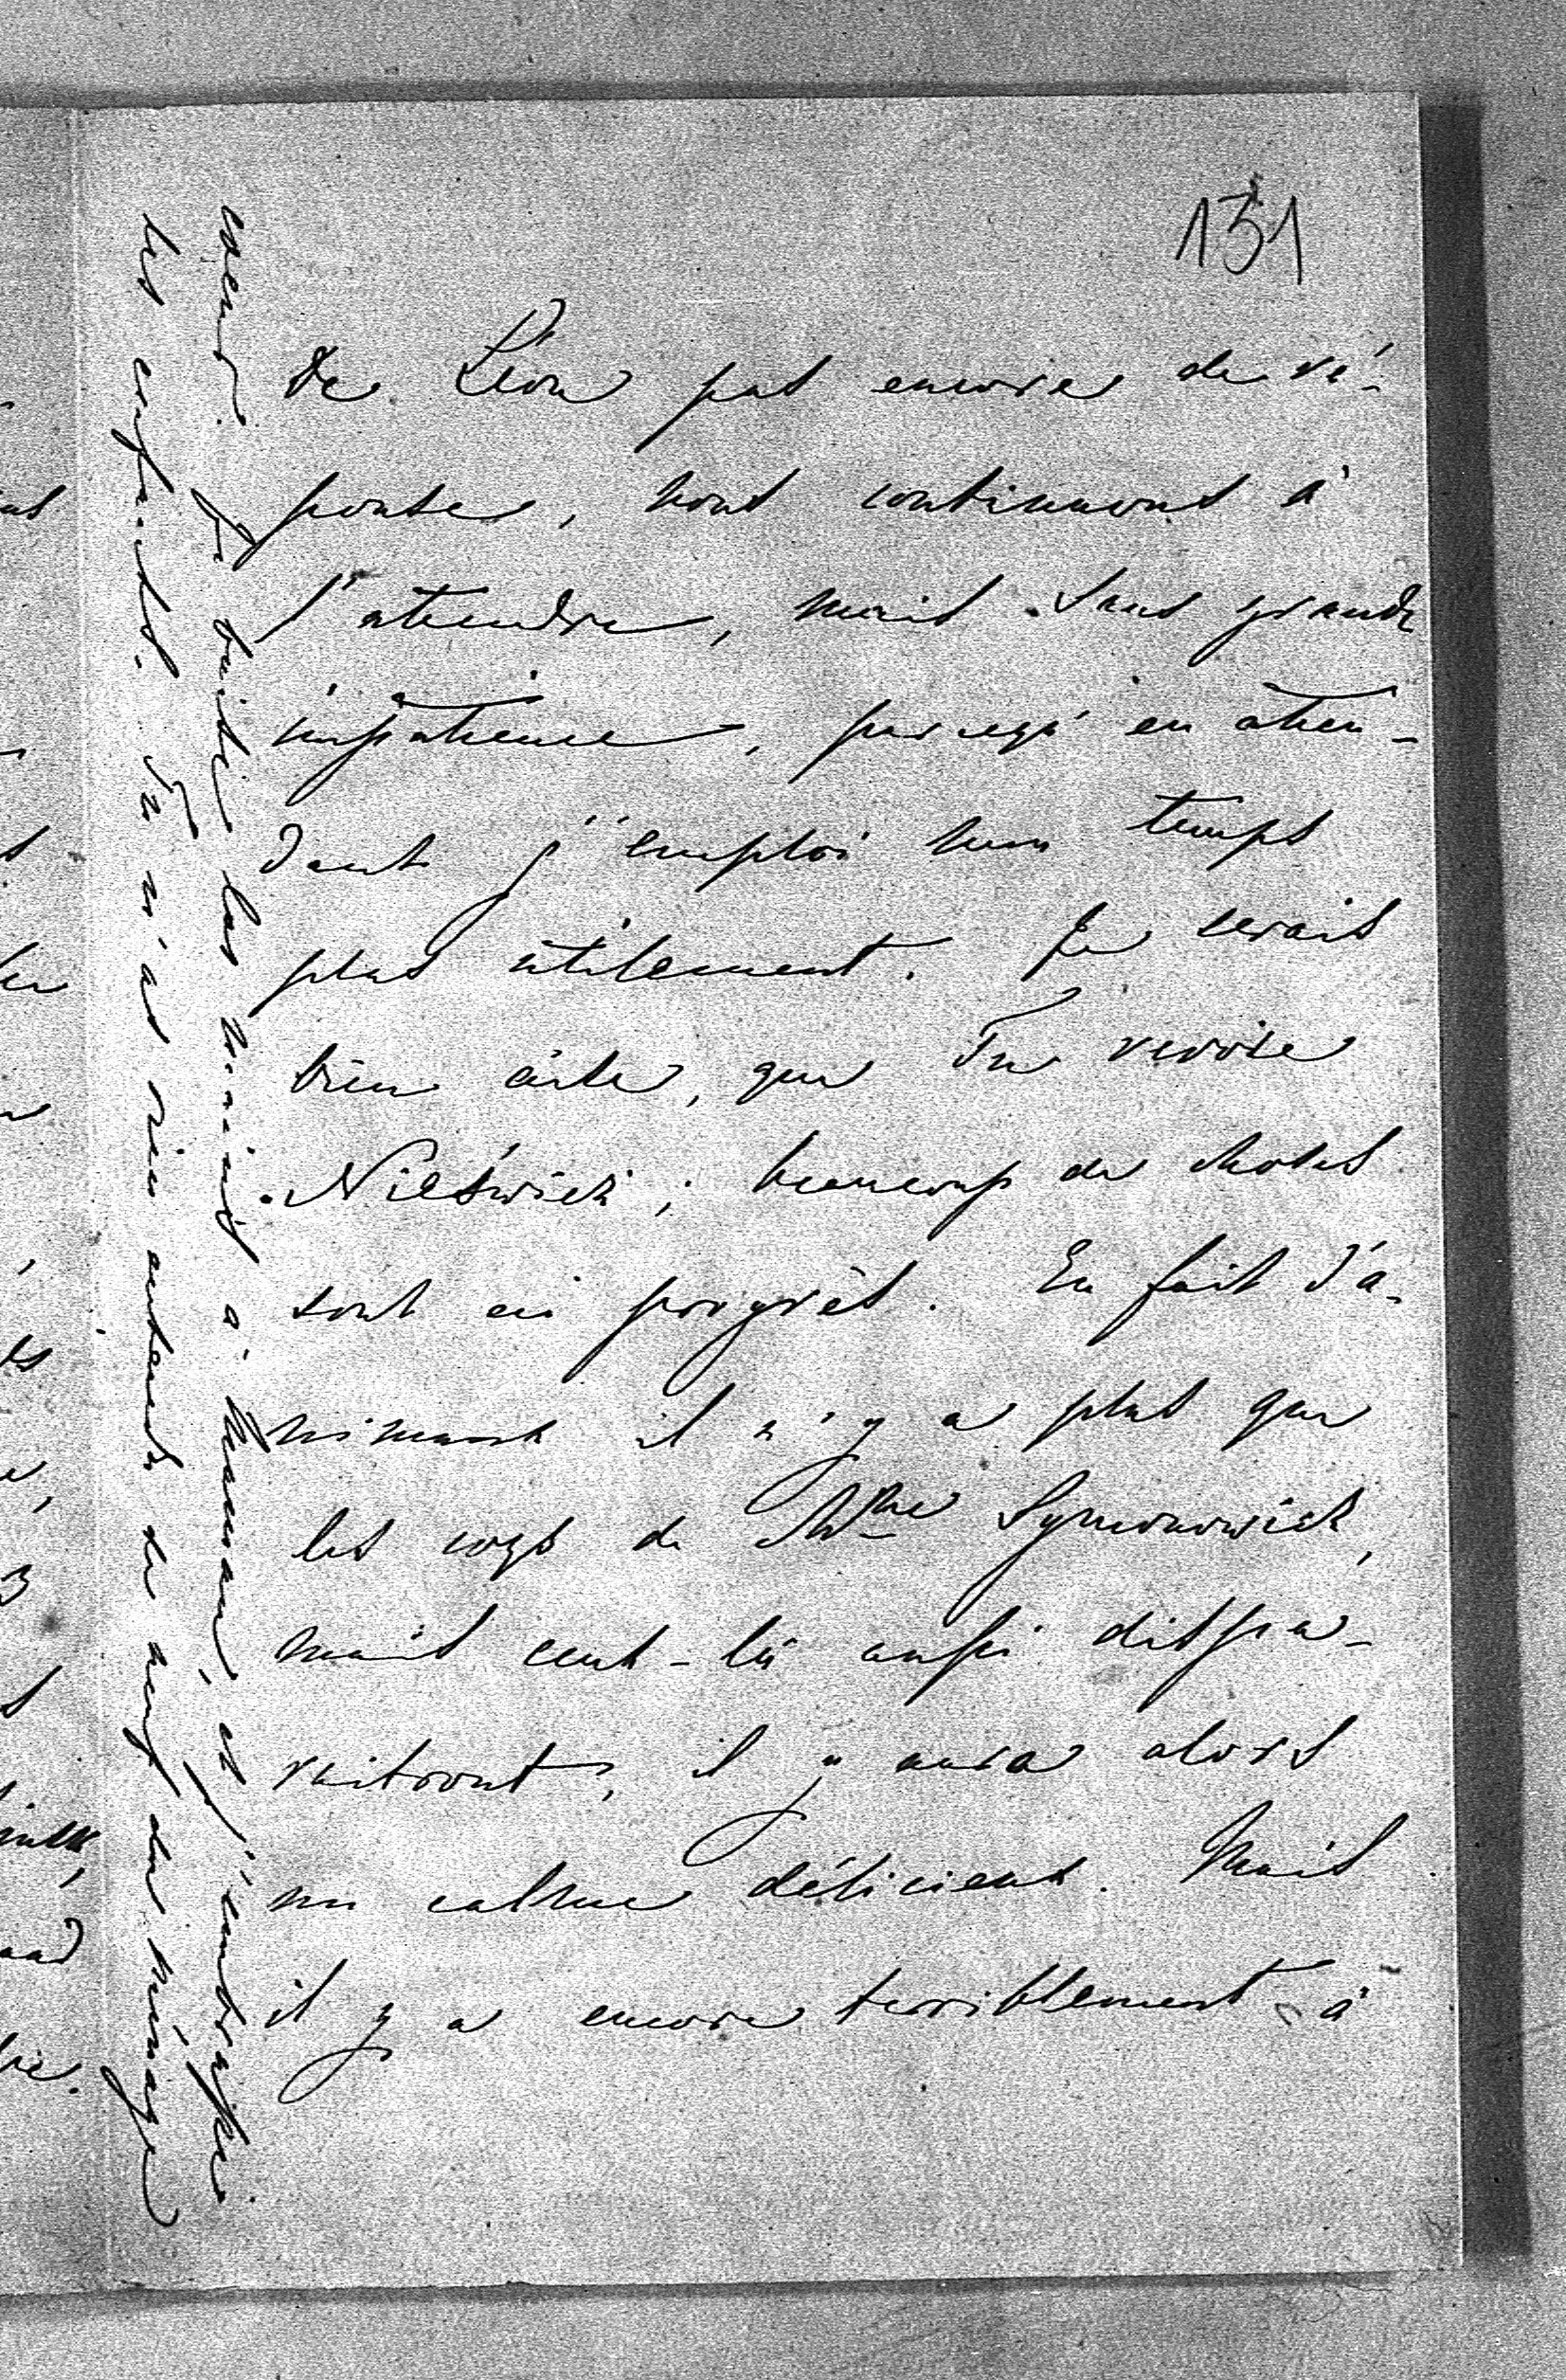 131
De Léon pas encore de ré-
ponse, nous continuons à
l'attendre, mais sans grande
impatience, parcequ'en atten-
dant j'emploi mon temps
plus utilement. Je serais
bien aise, que Tu revoie
Nieświeź; beaucoup de choses
sont en progrès. En fait d'a-
nimaux il n'y a plus que
les coqs de Mme Symonowicz,
mais ceux-là aussi dispa-
raitront, il y aura alors
un calme délicieux. Mais
il y a encore terriblement à
Je baise les mains à Maman, et j'embrasse
les enfants. Tu n'as rien entendu de neuf du ménage